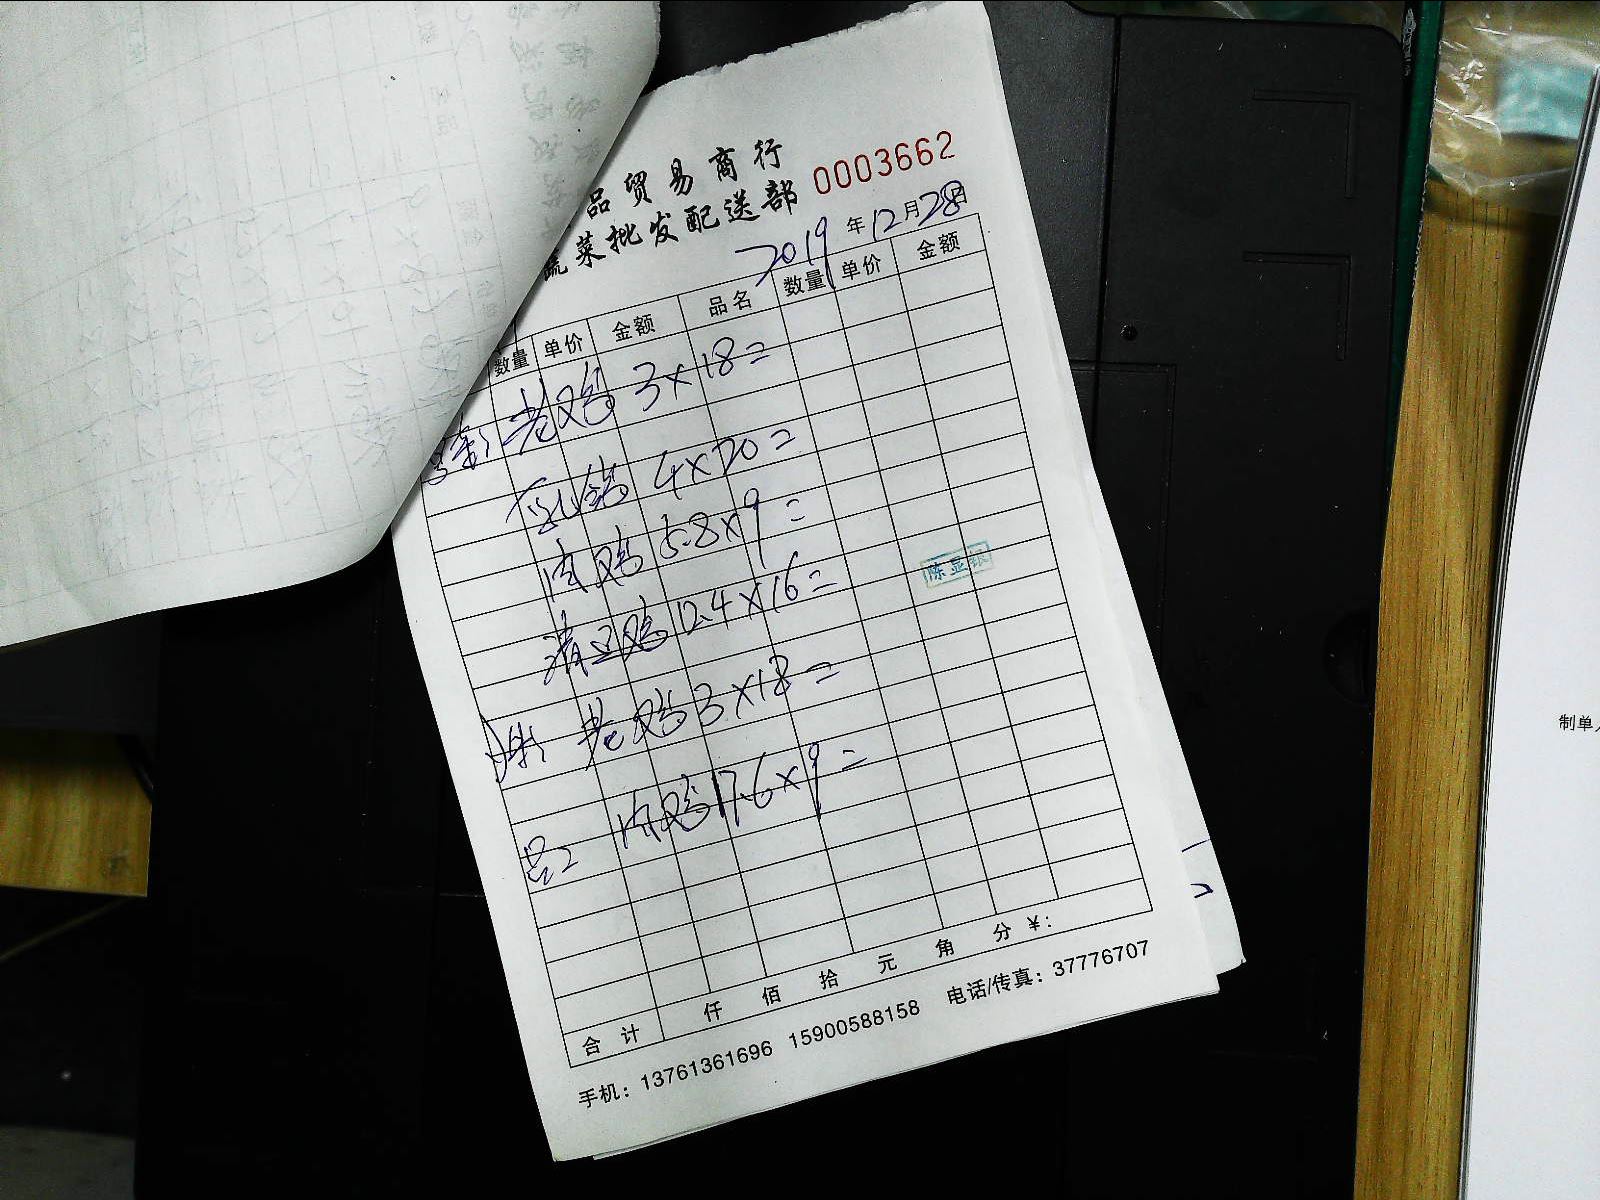 品贸易商行
蔬菜批发配送部 0003662
2019年12月28日
数量 单价 金额 品名 数量 单价 金额
老鸡 3×18=
乳鸽 4×20=
肉鸡 5.8×9=
清远鸡 12.4×16=
老鸡 3×18=
肉鸡 17.6×9=
陈显银
合计 仟 佰 拾 元 角 分 ¥:
手机：13761361696 15900588158 电话/传真：37776707
制单人